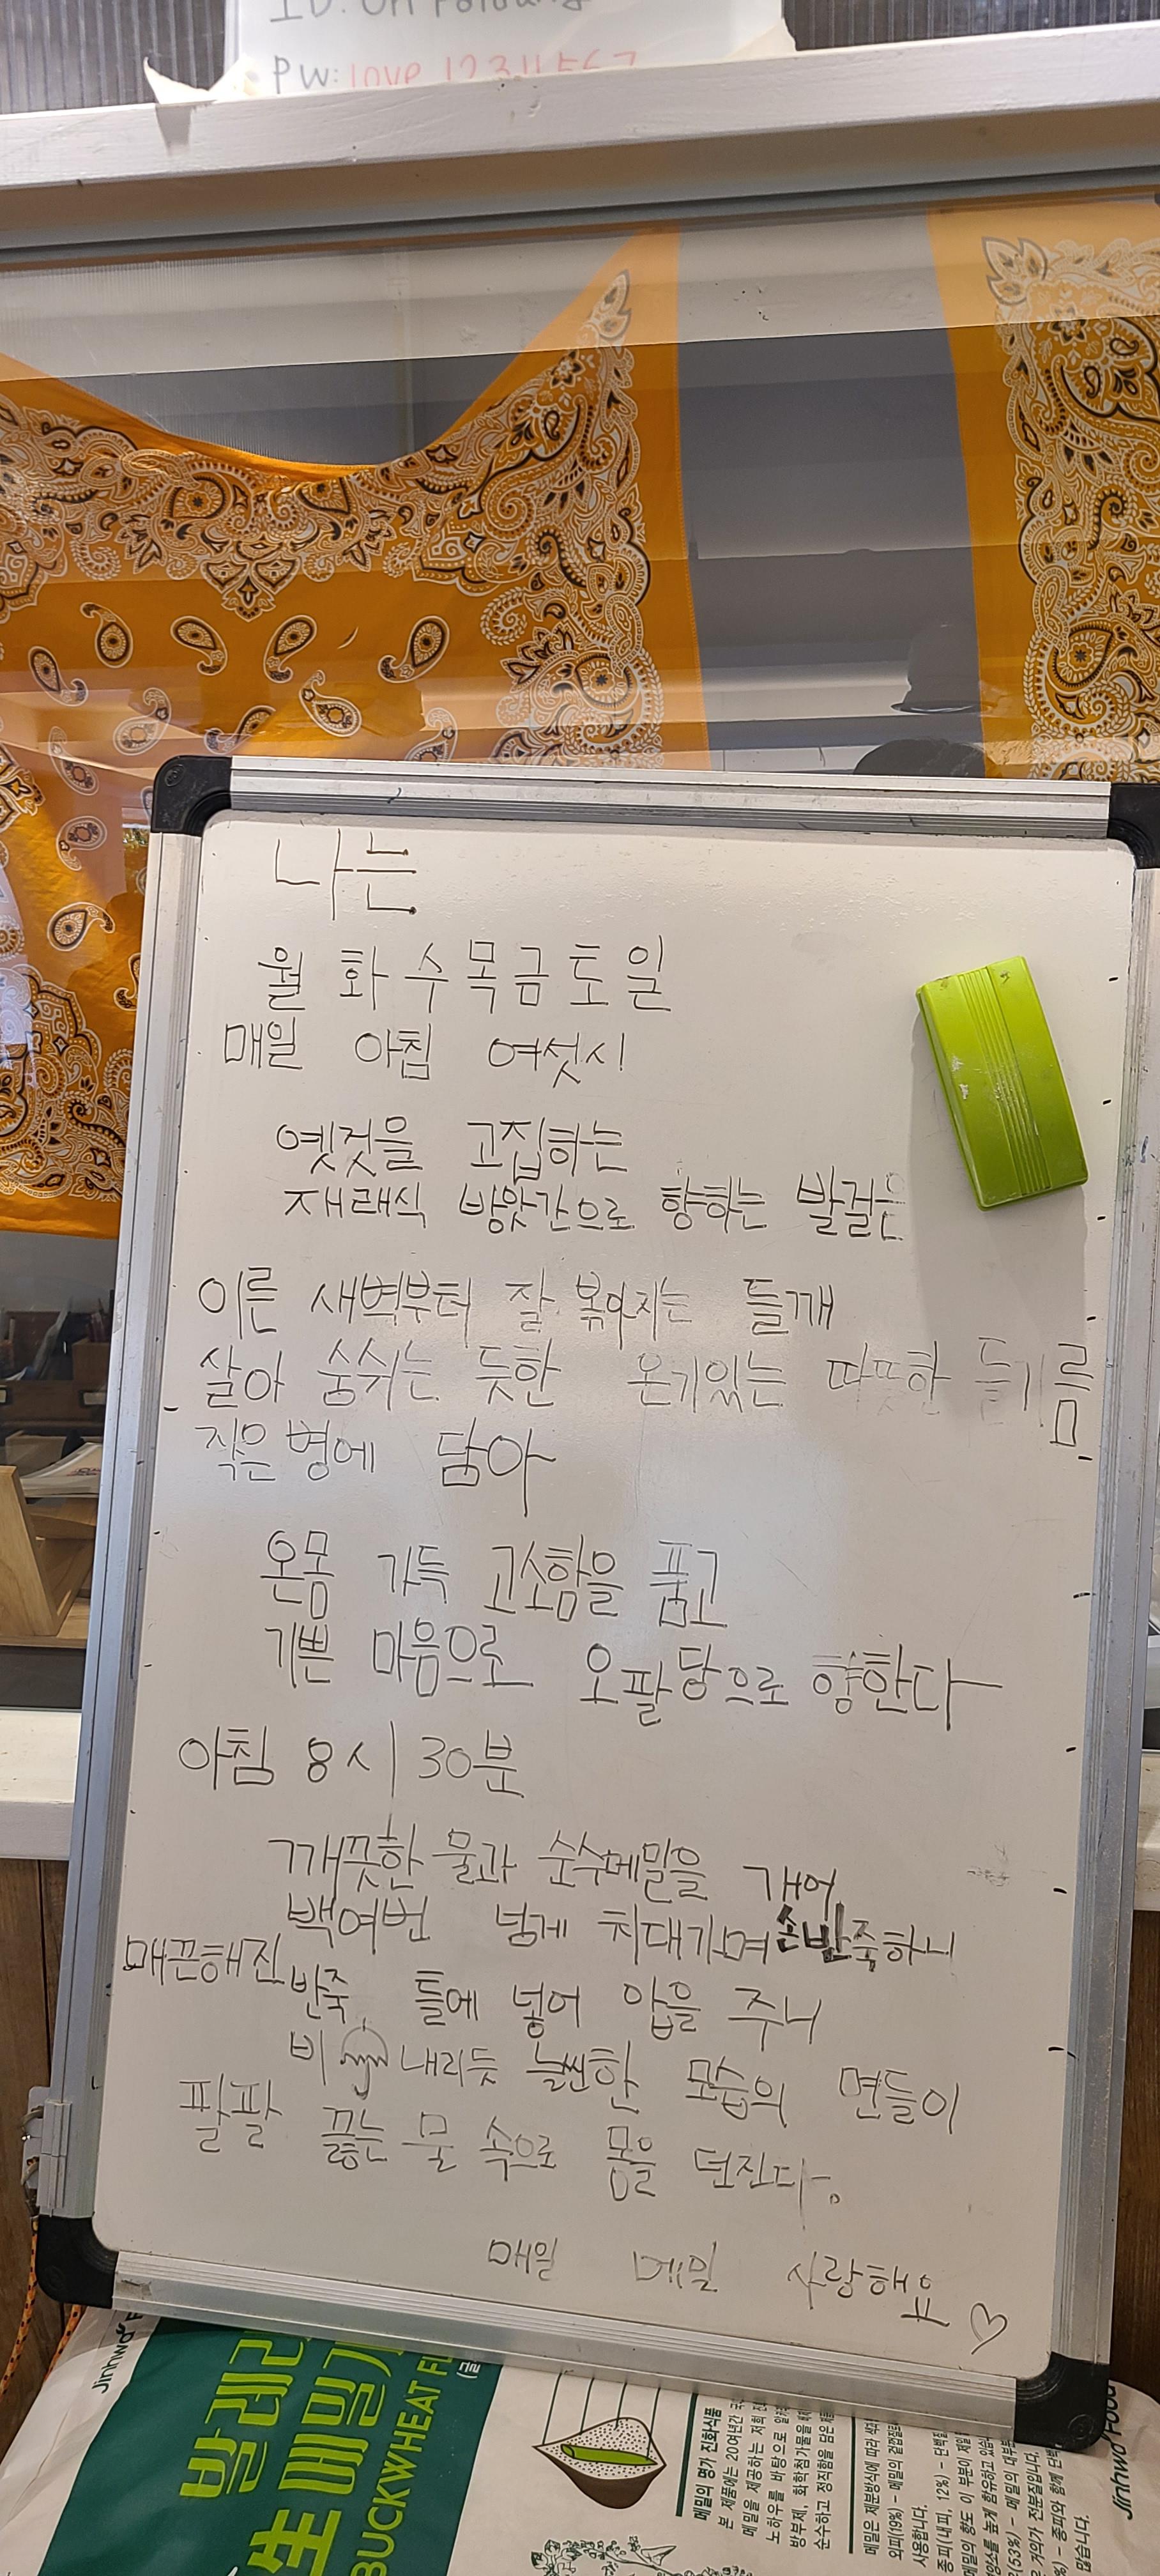 PW: love 1234567
나는
월 화 수 목 금 토 일
매일 아침 여섯시
옛것을 고집하는
재래식 방앗간으로 향하는 발걸은
이른 새벽부터 잘 볶아지는 들깨
살아 숨쉬는 듯한 온기있는 따뜻한 들기름
작은 병에 담아
온몸 가득 고소함을 품고
기쁜 마음으로 오팔당으로 향한다
아침 8시 30분
깨끗한 물과 순수메밀을 개어
백여번 넘게 치대가며 손반죽하니
매끈해진 반죽 틀에 넣어 압을 주니
비 내리듯 늘씬한 모습의 면들이
팔팔 끓는 물 속으로 몸을 던진다.
매일 메밀 사랑해요 ♡
Jinhwa
生메밀가
BUCKWHEAT FL
메밀의 명가 진화식품
Jinhwa Food